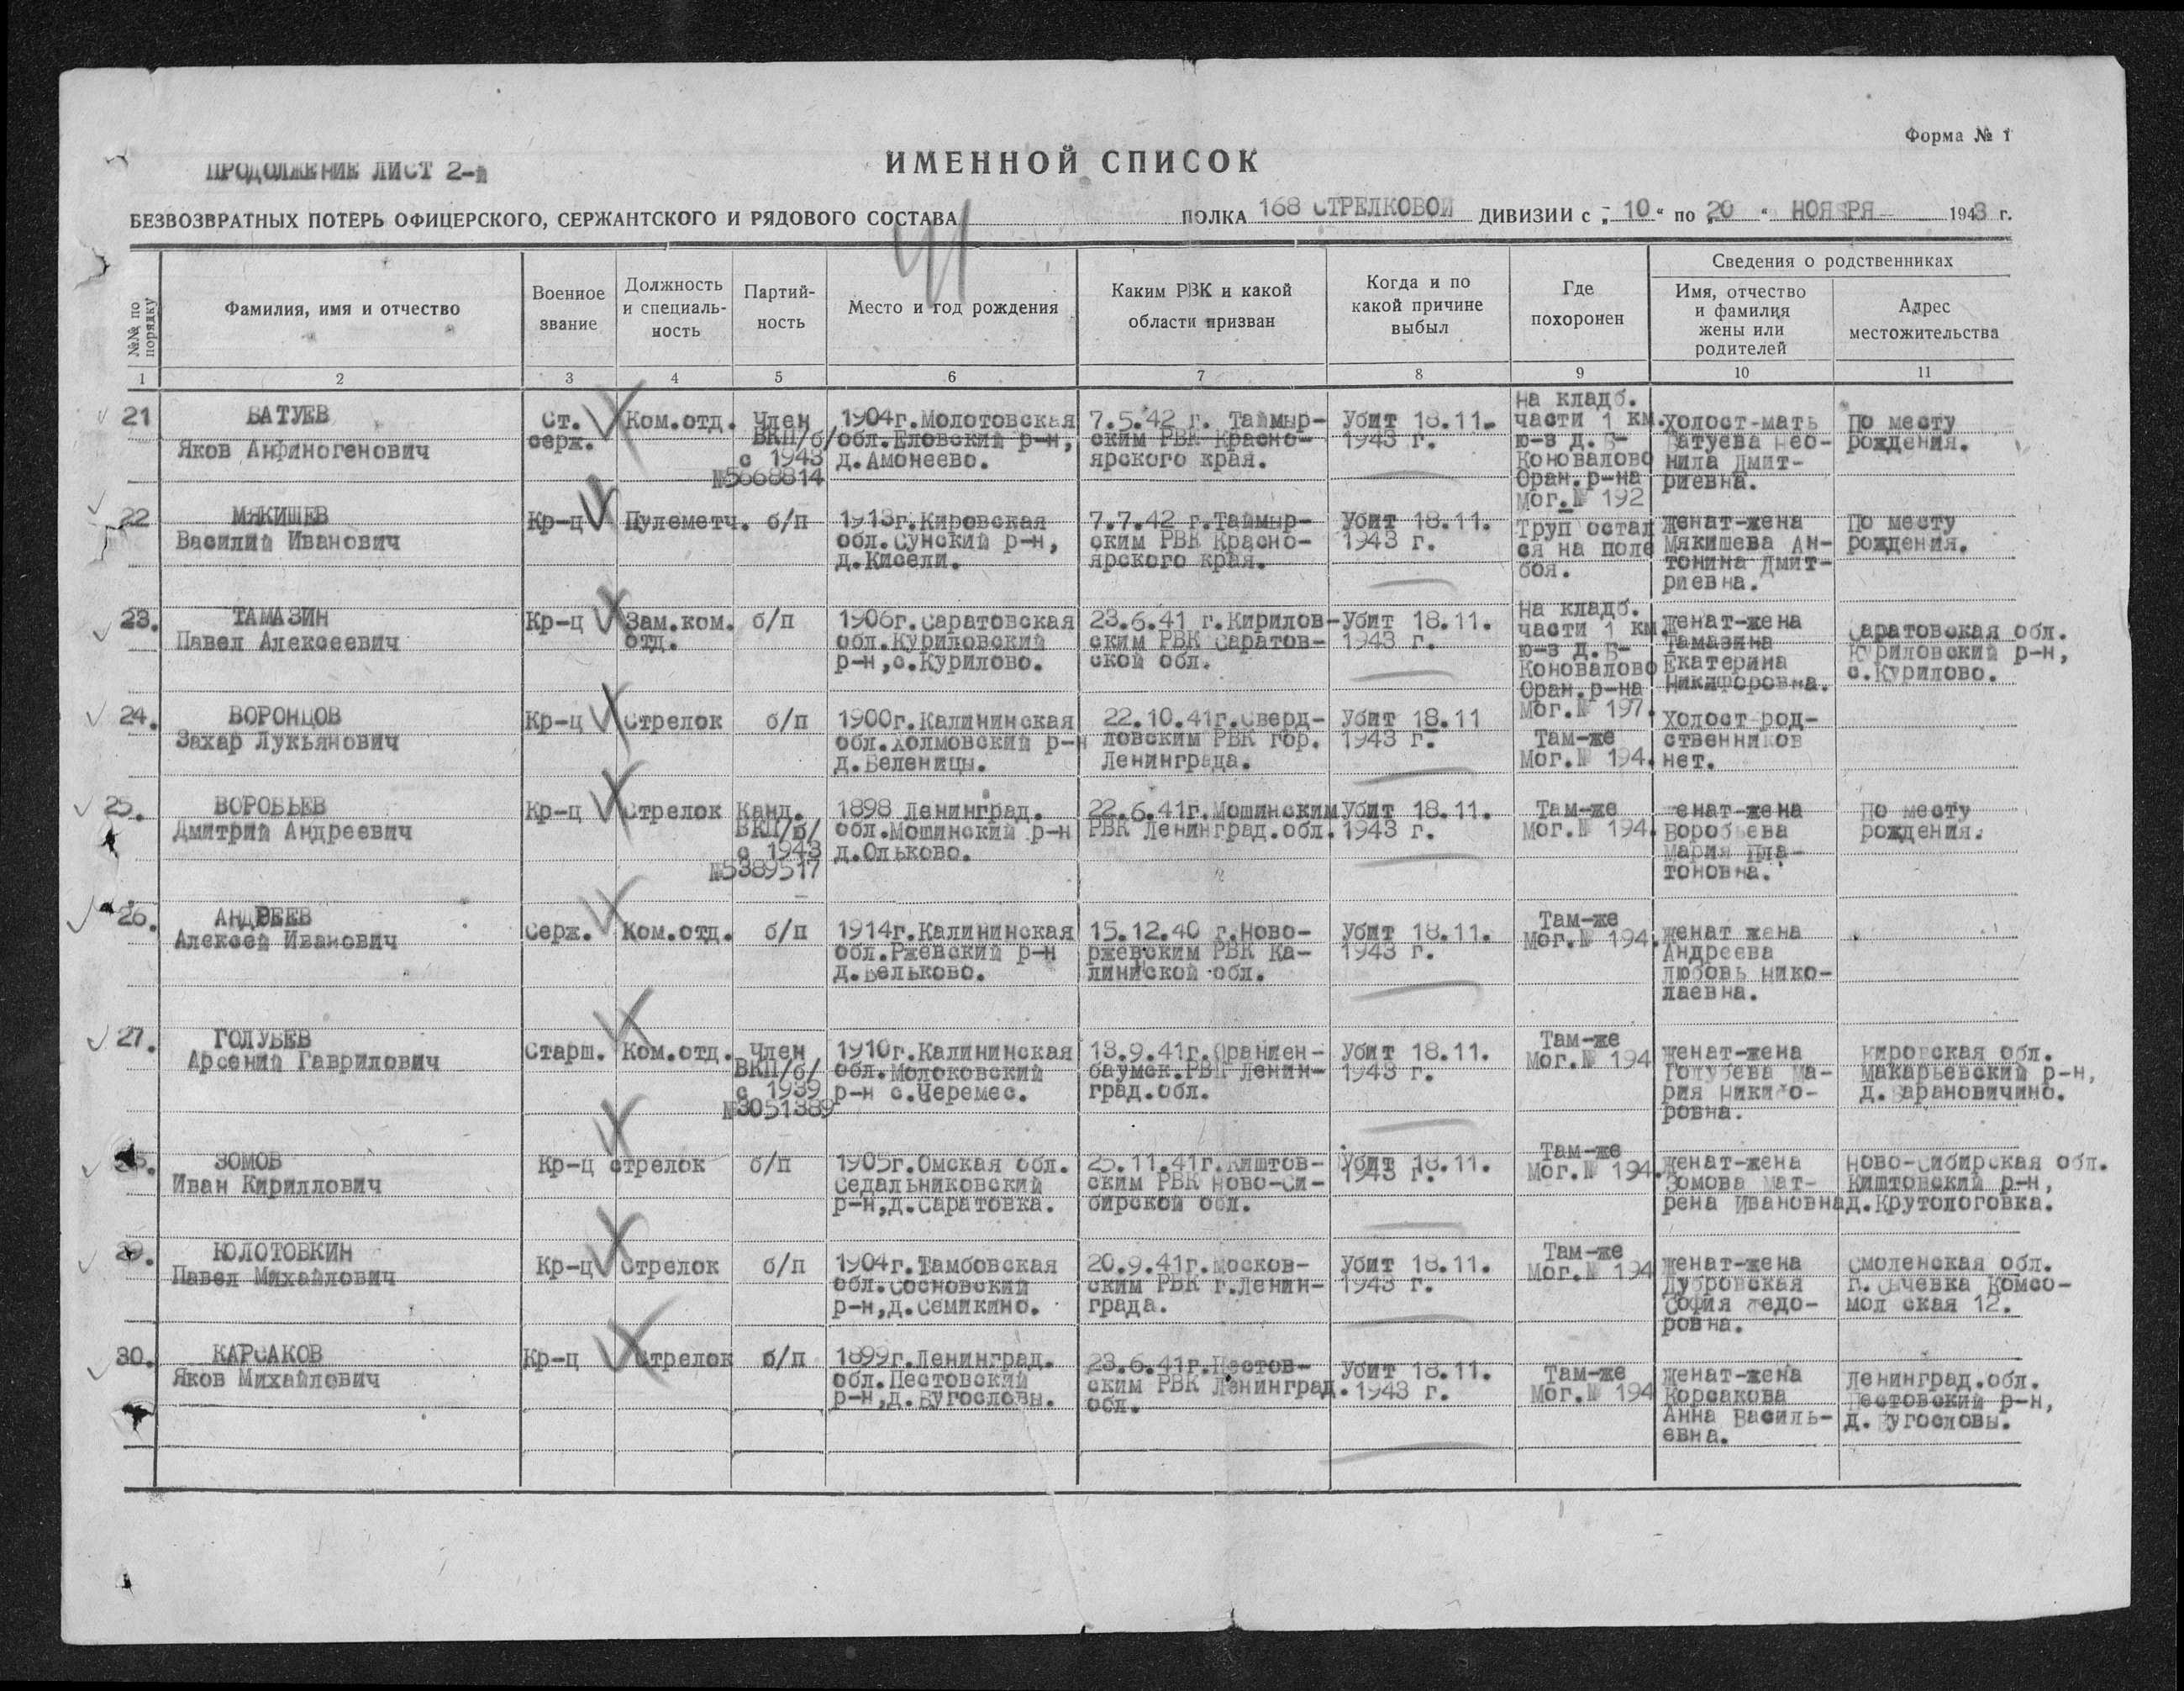 Форма № 1
ПРОДОЛЖЕНИЕ ЛИСТ 2-й
ИМЕННОЙ СПИСОК
БЕЗВОЗВРАТНЫХ ПОТЕРЬ ОФИЦЕРСКОГО, СЕРЖАНТСКОГО И РЯДОВОГО СОСТАВА ПОЛКА 168 СТРЕЛКОВОЙ ДИВИЗИИ с „10“ по „20“ НОЯБРЯ 1943 г.
№№ по порядку
Фамилия, имя и отчество
Военное звание
Должность и специаль-ность
Партий-ность
Место и год рождения
Каким РВК и какой области призван
Когда и по какой причине выбыл
Где похоронен
Сведения о родственниках
Имя, отчество и фамилия жены или родителей
Адрес местожительства
1 2 3 4 5 6 7 8 9 10 11
21
БАТУЕВ
Яков Анфиногенович
Ст.
серж.
Ком.отд.
Член
ВКП/б/
с 1943
№5668814
1904г.Молотовская
обл.Еловский р-н,
д.Амонеево.
7.5.42 г. Таймыр-
ским РВК Красно-
ярского края.
Убит 18.11.
1943 г.
На кладб.
части 1 км.
ю-з д.Б-
Коновалово
Оран.р-на
Мог.№ 192
Холост-мать
Батуева Нео-
нила Дмит-
риевна.
По месту
рождения.
22
МЯКИШЕВ
Василий Иванович
Кр-ц
Пулеметч.
б/п
1913г.Кировская
обл.Сунский р-н,
д.Кисели.
7.7.42 г.Таймыр-
ским РВК Красно-
ярского края.
Убит 18.11.
1943 г.
Труп остал
ся на поле
боя.
Женат-жена
Мякишева Ан-
тонина Дмит-
риевна.
По месту
рождения.
23.
ТАМАЗИН
Павел Алексеевич
Кр-ц
Зам.ком.
отд.
б/п
1906г.Саратовская
обл.Куриловский
р-н,с.Курилово.
23.6.41 г.Кирилов-
ским РВК Саратов-
ской обл.
Убит 18.11.
1943 г.
На кладб.
части 1 км.
ю-з д.Б-
Коновалово
Оран.р-на
Мог.№ 197.
Женат-жена
Тамазина
Екатерина
Никифоровна.
Саратовская обл.
Куриловский р-н,
с.Курилово.
24.
ВОРОНЦОВ
Захар Лукьянович
Кр-ц
Стрелок
б/п
1900г.Калининская
обл.Холмовский р-н
д.Беленицы.
22.10.41г.Сверд-
ловским РВК гор.
Ленинграда.
Убит 18.11
1943 г.
Там-же
Мог.№ 194.
Холост род-
ственников
нет.
25.
ВОРОБЬЕВ
Дмитрий Андреевич
Кр-ц
Стрелок
Канд.
ВКП/б/
с 1943
№5389517
1898 Ленинград.
обл.Мошинский р-н
д.Ольково.
22.6.41г.Мошинским
РВК Ленинград.обл.
Убит 18.11.
1943 г.
Там-же
Мог.№ 194.
енат-жена
Воробьева
Мария Пла-
тоновна.
По месту
рождения.
26.
АНДРЕЕВ
Алексей Иванович
Серж.
Ком.отд.
б/п
1914г.Калининская
обл.Ржевский р-н
д.Бельково.
15.12.40 г.Ново-
ржевским РВК Ка-
линиской обл.
Убит 18.11.
1943 г.
Там-же
Мог.№ 194.
Женат жена
Андреева
Любовь Нико-
лаевна.
27.
ГОЛУБЕВ
Арсений Гаврилович
Старш.
Ком.отд.
Член
ВКП/б/
с 1939
№3051389
1910г.Калининская
обл.Молоковский
р-н с.Черемес.
13.9.41г.Ораниен-
баумск.РВК Ленин-
град.обл.
Убит 18.11.
1943 г.
Там-же
Мог.№ 194
Женат-жена
Голубева Ма-
рия Никифо-
ровна.
Кировская обл.
Макарьевский р-н,
д.Барановичино.
28.
ЗОМОВ
Иван Кириллович
Кр-ц
стрелок
б/п
1905г.Омская обл.
Седальниковский
р-н,д.Саратовка.
25.11.41г.Киштов-
ским РВК Ново-Си-
бирской обл.
Убит 18.11.
1943 г.
Там-же
Мог.№ 194.
Женат-жена
Зомова Мат-
рена Ивановна
Ново-Сибирская обл.
Киштовский р-н,
д.Крутологовка.
29.
ЮЛОТОВКИН
Павел Михайлович
Кр-ц
Стрелок
б/п
1904г.Тамбовская
обл.Сосновский
р-н,д.Семикино.
20.9.41г.Москов-
ским РВК г.Ленин-
града.
Убит 18.11.
1943 г.
Там-же
Мог.№ 194
Женат-жена
Дубровская
София Федо-
ровна.
Смоленская обл.
г.Сычевка Комсо-
мол ская 12.
30.
КАРСАКОВ
Яков Михайлович
Кр-ц
Стрелок
б/п
1899г.Ленинград.
обл.Пестовский
р-н,д.Бугословы.
23.6.41г.Пестов-
ским РВК Ленинград.
обл.
Убит 18.11.
1943 г.
Там-же
Мог.№ 194
Женат-жена
Корсакова
Анна Василь-
евна.
Ленинград.обл.
Пестовский р-н,
д.Бугословы.